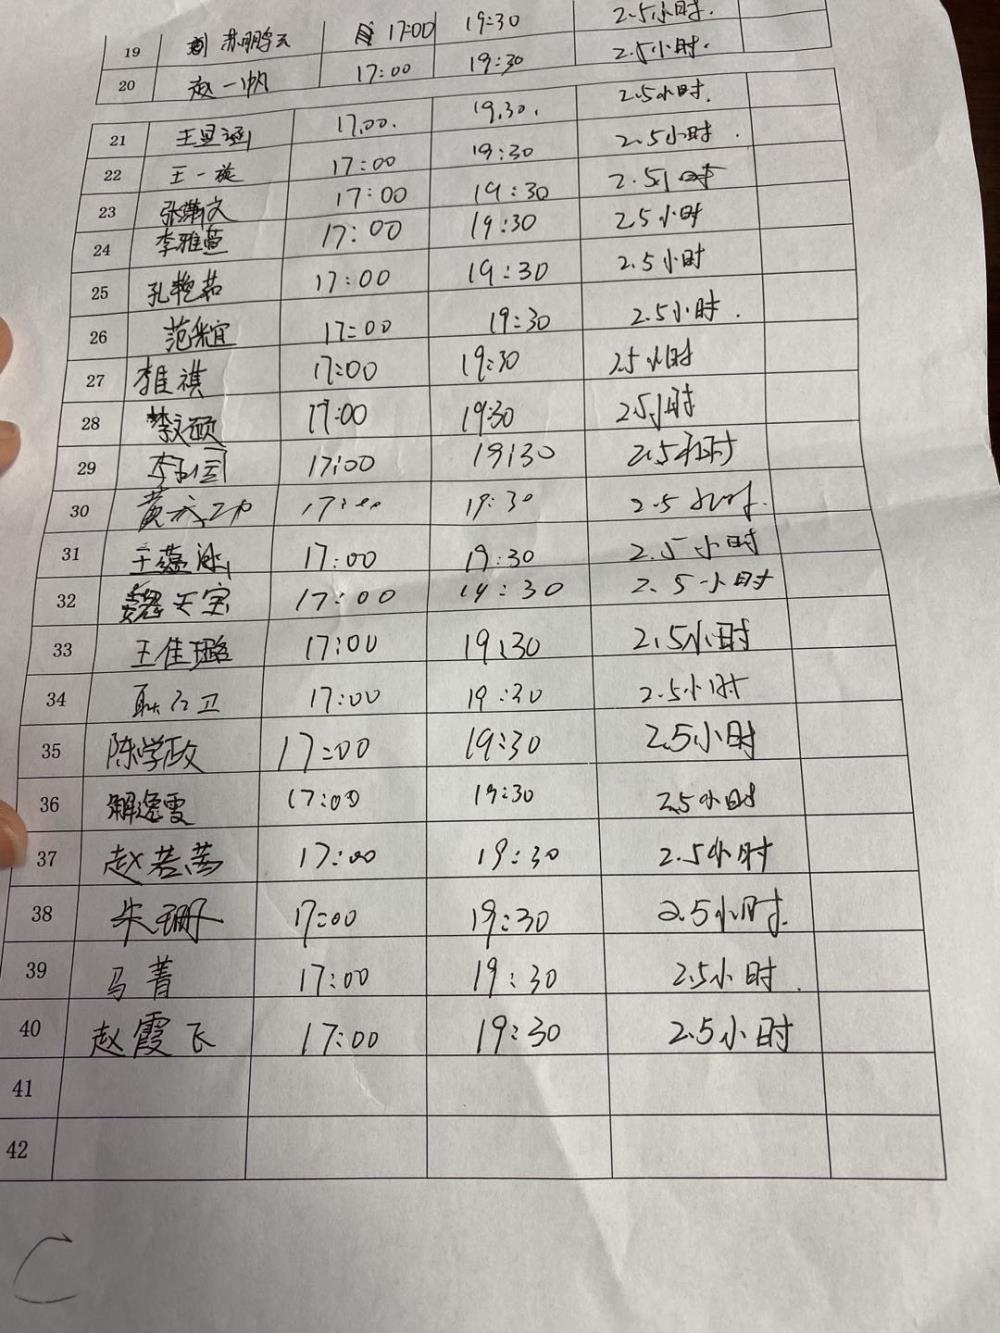 19 苏鹏云 17:00 19:30 2.5小时.
20 赵一帆 17:00 19:30 2.5小时.
21 王显涵 17.00. 19.30. 2.5小时.
22 王一璇 17:00 19:30 2.5小时.
23 张 文 17:00 19:30 2.5小时
24 李雅萱 17:00 19:30 2.5小时
25 孔艳茹 17:00 19:30 2.5小时
26 范 宜 17:00 19:30 2.5小时.
27 李佳祺 17:00 19:30 2.5小时
28 文硕 17:00 19:30 2.5小时
29 17:00 19:30 2.5小时
30 黄 17:00 19:30 2.5小时.
31 王蕴 17:00 19:30 2.5小时
32 魏天宝 17:00 19:30 2.5小时
33 王佳璐 17:00 19:30 2.5小时
34 耿 卫 17:00 19:30 2.5小时
35 陈学政 17:00 19:30 2.5小时
36 解逸雯 17:00 19:30 2.5小时
37 赵若茜 17:00 19:30 2.5小时
38 朱珊 17:00 19:30 2.5小时.
39 马菁 17:00 19:30 2.5小时.
40 赵霞飞 17:00 19:30 2.5小时
41
42